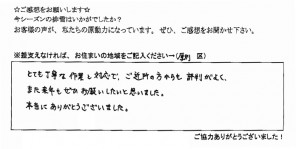 ☆ご感想をお願いします☆
今シーズンの排雪はいかがでしたか？
お客様の声が、私たちの原動力になっています。ぜひ、ご感想をお聞かせ下さい。
※差支えなければ、お住まいの地域をご記入ください→（ 区）
とても丁寧な作業と対応で、ご近所の方からも評判がよく、
また来年もぜひお願いしたいと思いました。
本当にありがとうございました。
ご協力ありがとうございました！